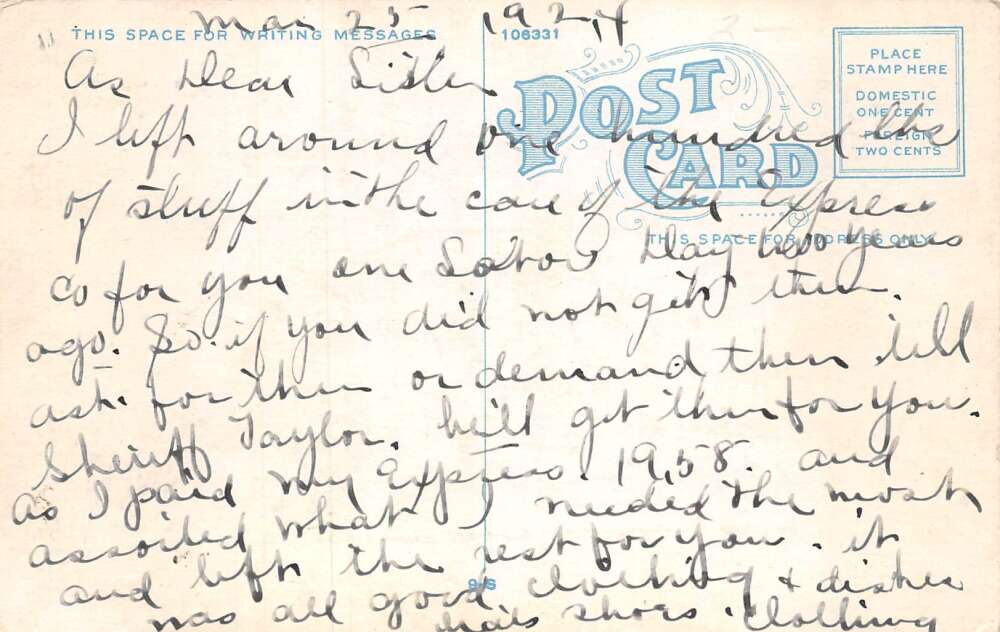 Mar 25 1924
THIS SPACE FOR WRITING MESSAGES
106331
POST CARD
PLACE
STAMP HERE
DOMESTIC
ONE CENT
FOREIGN
TWO CENTS
THIS SPACE FOR ADDRESS ONLY
As Dear Sister
I left around one hundred lbs
of stuff in the care of the Express
Co for you one Day two years
ago. So if you did not get them.
ask for them or demand them tell
Sheriff Taylor. he'll get them for you.
As I paid my Express. 19.58. and
assorted what I needed the most
and left the rest for you. it
was all good clothing & dishes
hats shoes. clothing
9-6